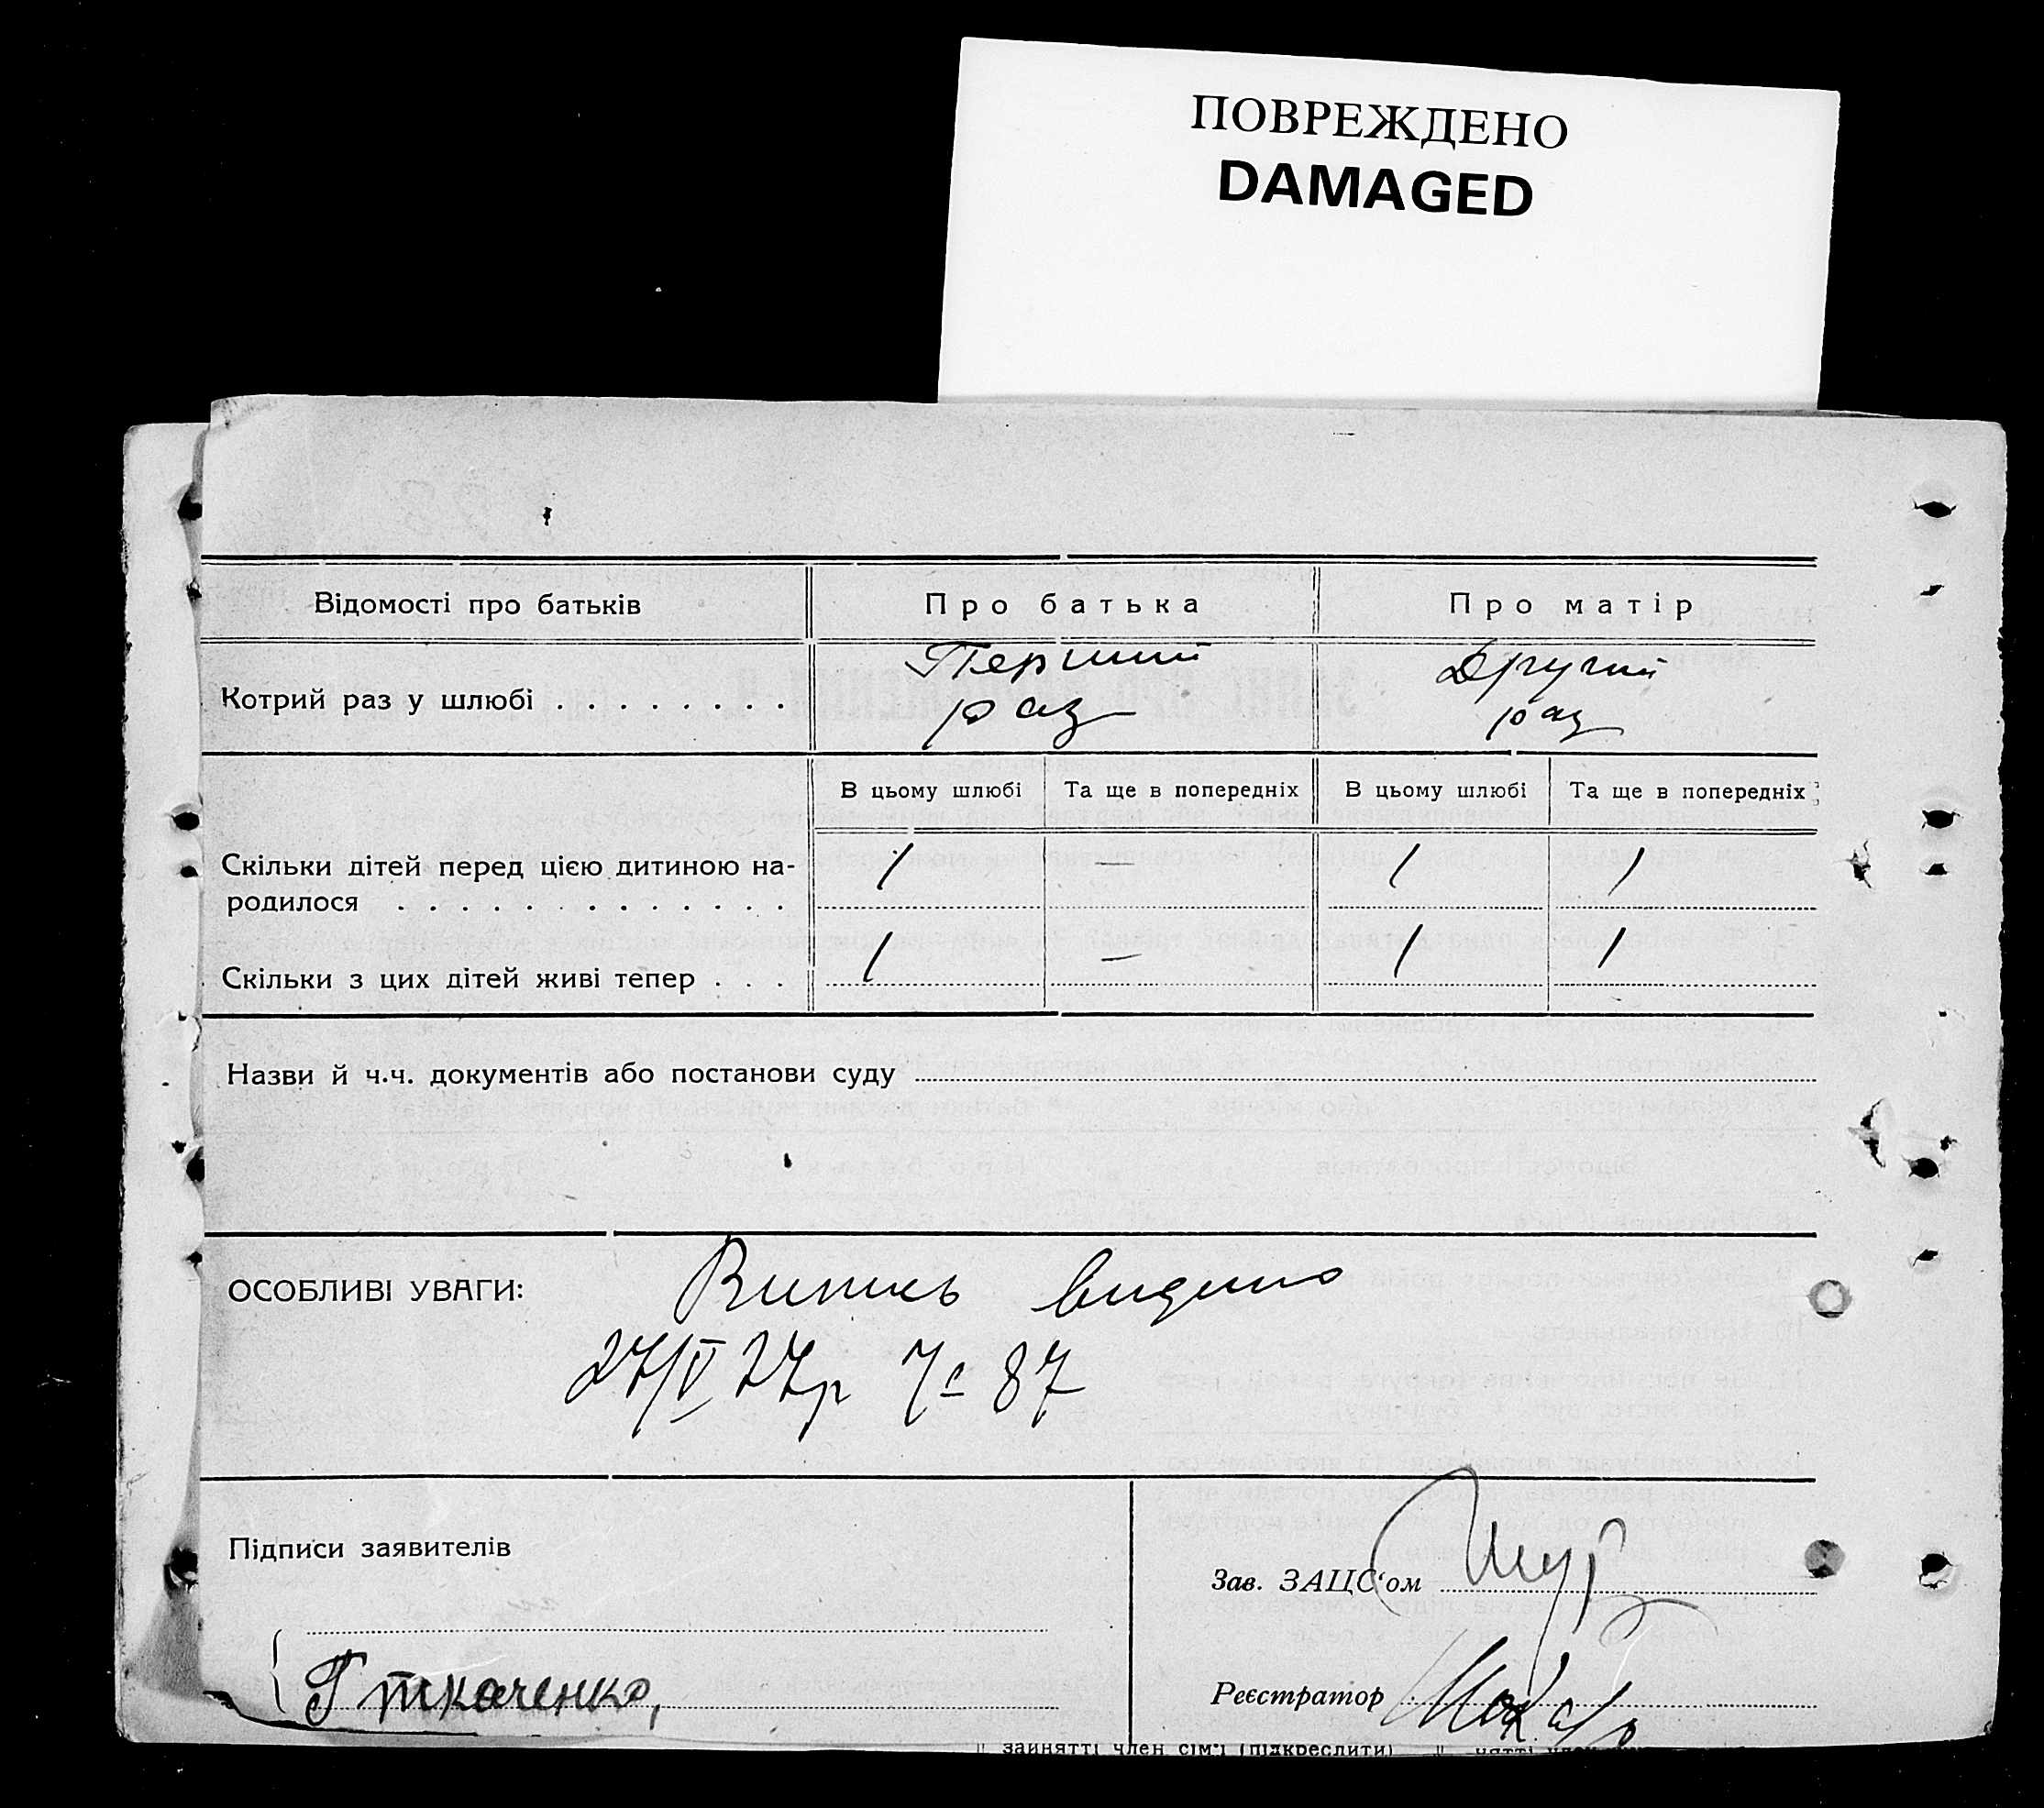 ПОВРЕЖДЕНО
DAMAGED
Відомості про батьків
Про батька
Про матір
Котрий раз у шлюбі . . . . . . . . .
Перший
раз
Другий
раз
В цьому шлюбі
Та ще в попередніх
В цьому шлюбі
Та ще в попередніх
Скільки дітей перед цією дитиною на-
родилося . . . . . . . . . . . . . .
1
—
1
1
Скільки з цих дітей живі тепер . . .
1
—
1
1
Назви й ч.ч. документів або постанови суду
ОСОБЛИВІ УВАГИ:
Випись видано
27/V 27р 87
Підписи заявителів
Зав. ЗАЦС‘ом
Г ткаченко,
Реєстратор
зайнятті член сім‘ї (підкреслити)